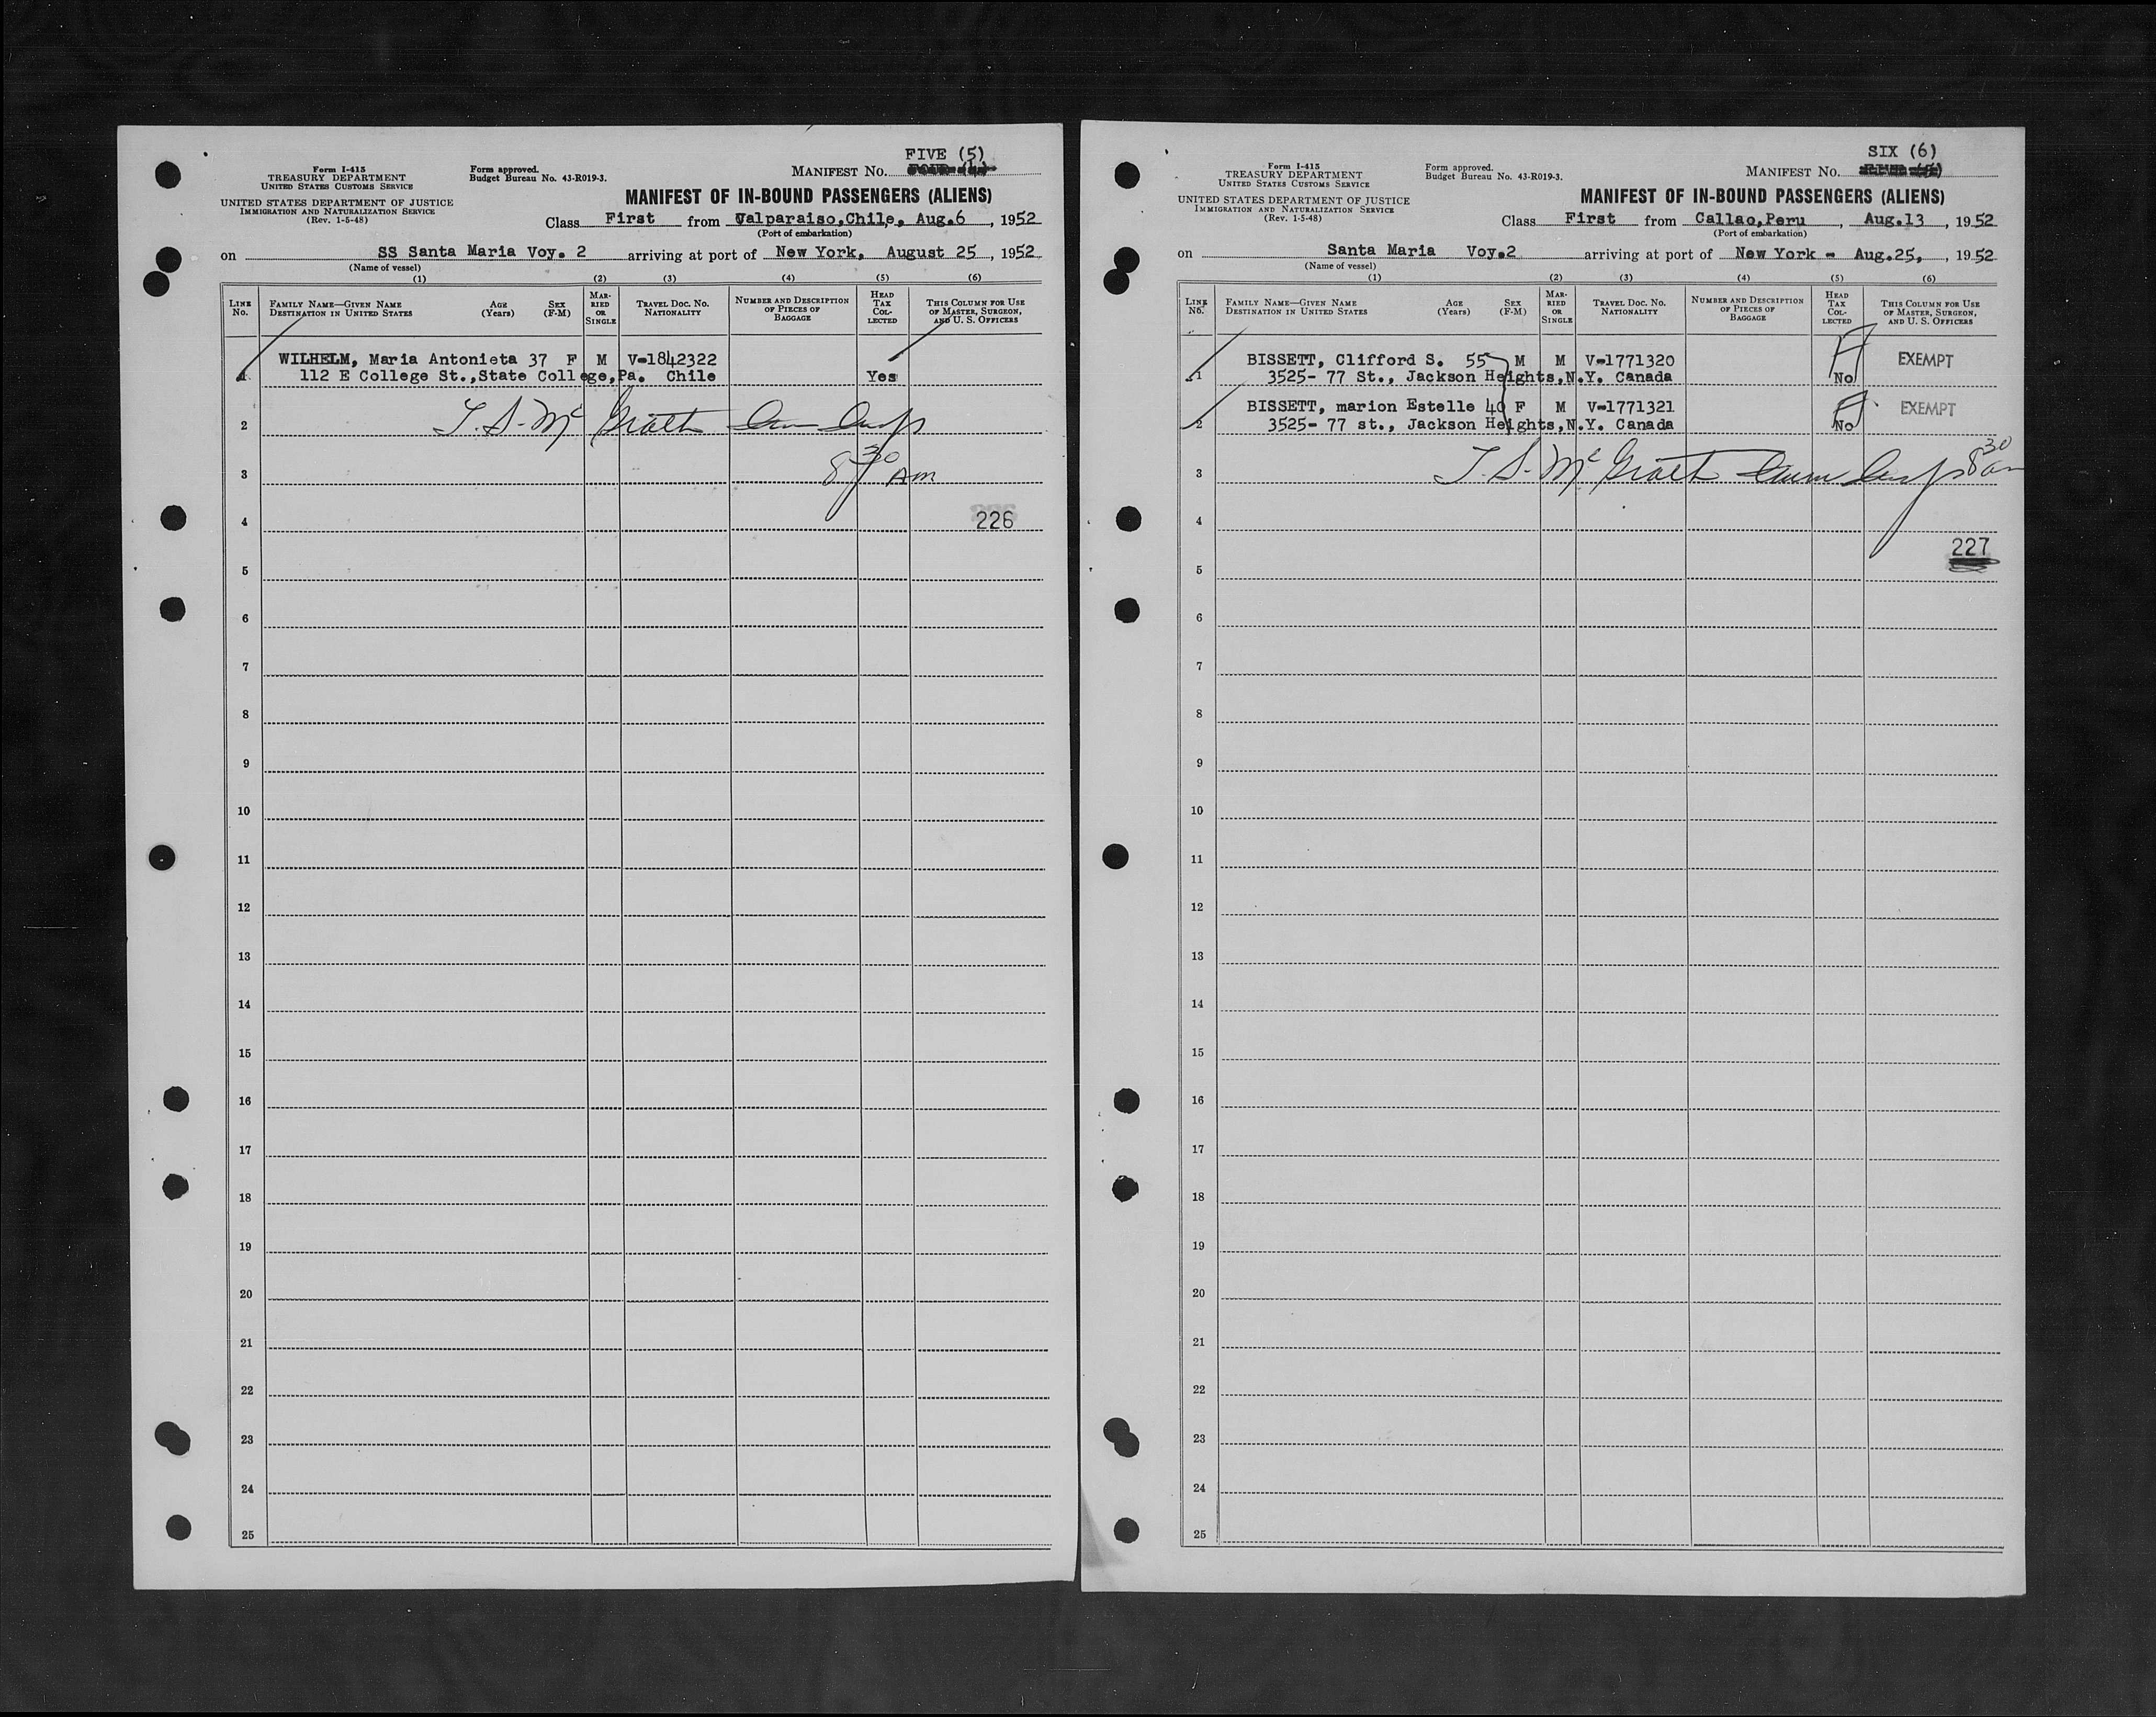 FIVE (5)
Form I-415
TREASURY DEPARTMENT
UNITED STATES CUSTOMS SERVICE
Form approved.
Budget Bureau No. 43-R019-3.
MANIFEST No.
UNITED STATES DEPARTMENT OF JUSTICE
IMMIGRATION AND NATURALIZATION SERVICE
(Rev. 1-5-48)
MANIFEST OF IN-BOUND PASSENGERS (ALIENS)
Class First from Valparaiso,Chile, Aug.6, 1952
(Port of embarkation)
on SS Santa Maria Voy. 2 arriving at port of New York, August 25, 1952
(Name of vessel)
(1) (2) (3) (4) (5) (6)
LINE No. FAMILY NAME—GIVEN NAME DESTINATION IN UNITED STATES AGE (Years) SEX (F-M) MARRIED OR SINGLE TRAVEL DOC. No. NATIONALITY NUMBER AND DESCRIPTION OF PIECES OF BAGGAGE HEAD TAX COLLECTED THIS COLUMN FOR USE OF MASTER, SURGEON, AND U. S. OFFICERS
1 WILHELM, Maria Antonieta 37 F M V-1842322
112 E College St.,State College,Pa. Chile Yes
2 T. S. McGrath
3 8 30 Am
4 226
5
6
7
8
9
10
11
12
13
14
15
16
17
18
19
20
21
22
23
24
25
SIX (6)
Form I-415
TREASURY DEPARTMENT
UNITED STATES CUSTOMS SERVICE
Form approved.
Budget Bureau No. 43-R019-3.
MANIFEST No.
UNITED STATES DEPARTMENT OF JUSTICE
IMMIGRATION AND NATURALIZATION SERVICE
(Rev. 1-5-48)
MANIFEST OF IN-BOUND PASSENGERS (ALIENS)
Class First from Callao,Peru, Aug.13, 1952
(Port of embarkation)
on Santa Maria Voy.2 arriving at port of New York - Aug.25,, 1952
(Name of vessel)
(1) (2) (3) (4) (5) (6)
LINE No. FAMILY NAME—GIVEN NAME DESTINATION IN UNITED STATES AGE (Years) SEX (F-M) MARRIED OR SINGLE TRAVEL DOC. No. NATIONALITY NUMBER AND DESCRIPTION OF PIECES OF BAGGAGE HEAD TAX COLLECTED THIS COLUMN FOR USE OF MASTER, SURGEON, AND U. S. OFFICERS
1 BISSETT, Clifford S. 55 M M V-1771320 EXEMPT
3525- 77 St., Jackson Heights,N.Y. Canada No
2 BISSETT, marion Estelle 40 F M V-1771321 EXEMPT
3525- 77 st., Jackson Heights,N.Y. Canada No
3 T. S. McGrath 8 30 am
4
227
5
6
7
8
9
10
11
12
13
14
15
16
17
18
19
20
21
22
23
24
25